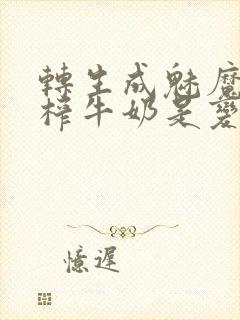 轉生成魅魔
榨牛奶是變
憶遲